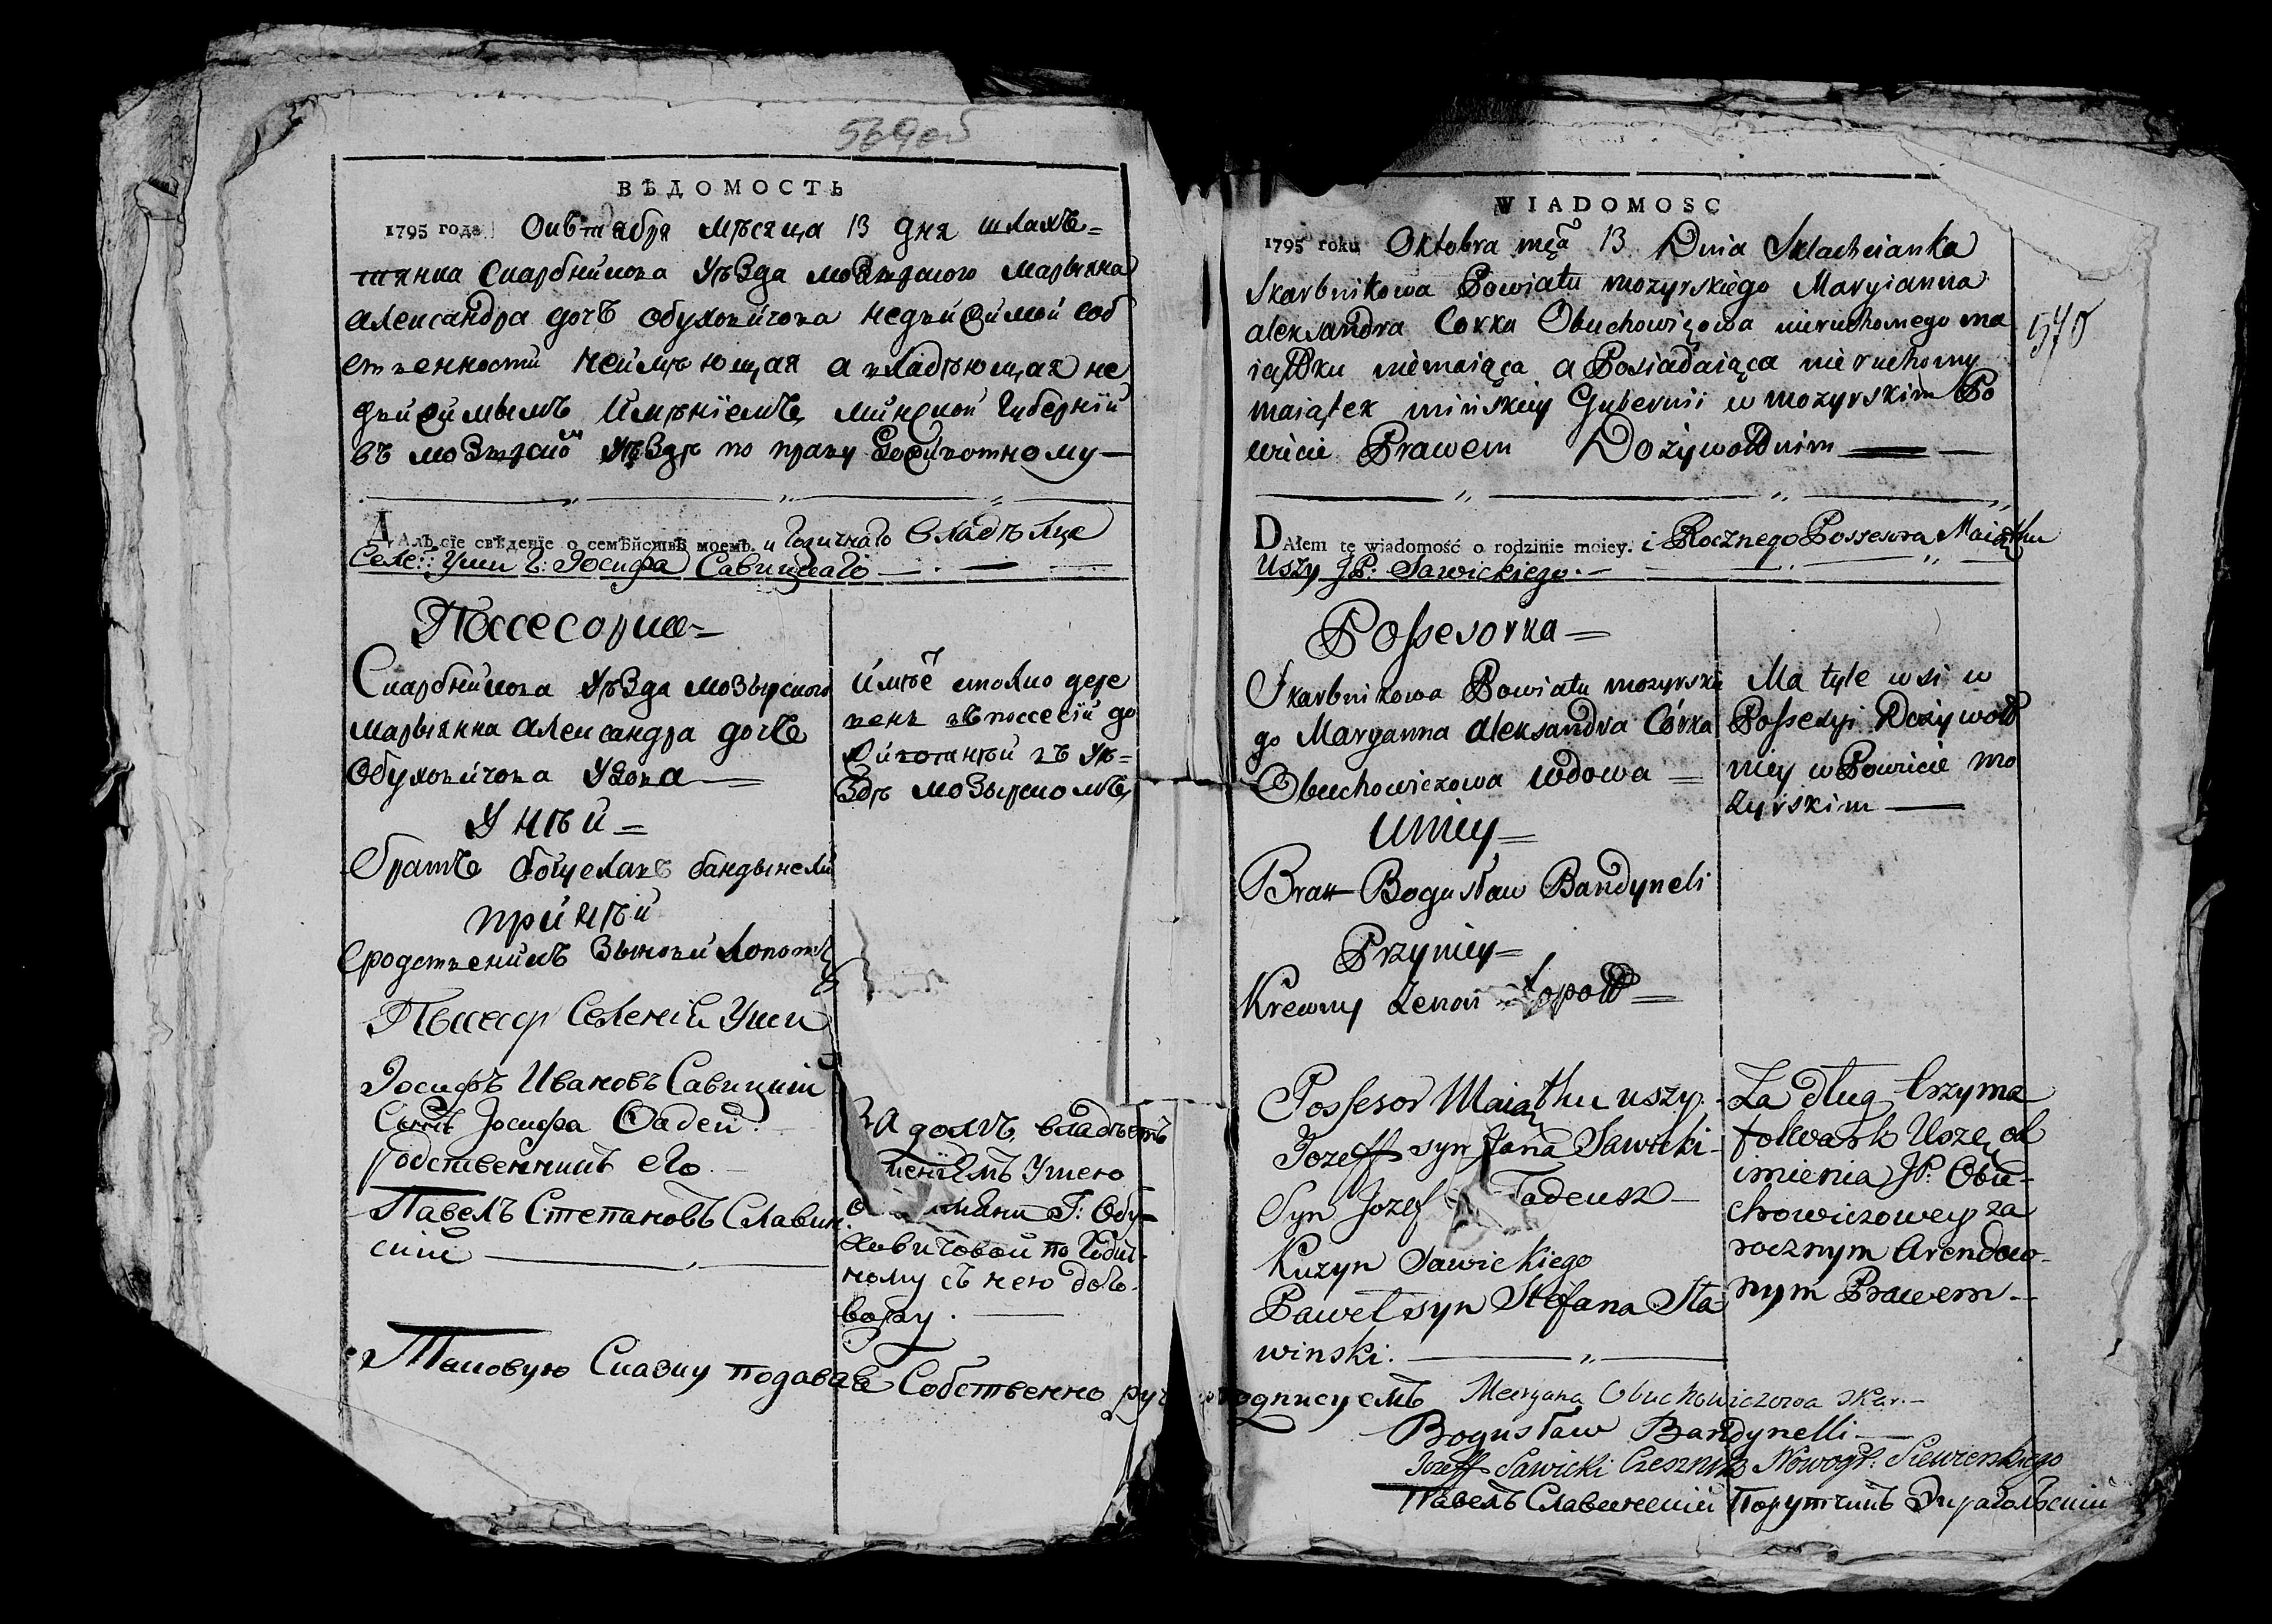 569об
ВѢДОМОСТЬ
1795 года Октября мѣсяца 13 дня шляхъ=
тянка Скарбникова уѣзда мозырского Марьяна
Александра дочъ Обуховичова недвижимой соб
ственности неимѣющая а владѣющая не
движимымъ имѣніемъ минской губерніи
въ мозырско уѣздѣ по праву доживотному
Далъ сіе свѣденіе о семѣйствѣ моемъ. и годичнаго владѣльца
Селе: Уши Г: Іосифа Савицкаго
Поссесорка
Скарбникова уѣзда мозырского
Марьянна Александра дочъ
Обуховичова вдова
У нѣй =
братъ богуславъ бандынели
при нѣй
сродственикъ Зѣновий Лопотъ
Поссесор Селеній Уши
Іосифъ Ивановъ Савицкій
Сынъ Іосифа Фадей
родственникъ его
Павелъ Степановъ Славин
скій
имѣе столко дере
вень въ поссесіи до
животнѣй въ уѣ=
здѣ мозырскомъ
За долгъ владѣетъ
имѣніемъ Ушею
Г: Обу-
ховичовой по годич-
ному съ нею дого-
вору.
Таковую Сказку подавая Собственно руч подписуемъ
WIADOMOSC
570
1795 roku Oktobra mca 13 Dnia Szlachcianka
Skarbnikowa Powiatu mozyrskiego Maryianna
alexandra Corka Obuchowiczowa nieruchomego ma
iątku niemaiąca a Posiadaiąca nieruchomy
maiątek mińskiey Gubernii w mozyrskim Po
wiecie Prawem Dożywotnim
DAłem tę wiadomość o rodzinie moiey. i Rocznego Possesora Maiątku
Uszy JP: Sawickiego.
Possesorka =
Skarbnikowa Powiatu mozyrskie
go Maryanna Alexandra Córka
Obuchowiczowa wdowa =
U niey =
Bratt Bogusław Bandyneli
Przyniey =
Krewny Zenon Łopott =
Possesor Maiąthu uszy.
Jozeff syn Jana Sawicki
Syn Jozef Tadeusz
Kuzyn Sawickiego
Paweł syn Stefana Sła
winski.
Ma tyle wsi w
Possesyi Dożywott
niey w Powiecie mo
zyrskim
Za dług trzyma
folwark Uszę od
imienia JP: Obu-
chowiczowey za
rocznym Arendow-
nym Prawem
Maryana Obuchowiczowa skar.
Bogusław Bandynelli
Jozeff Sawicki Czesznik Nowogr: Siewierskiego
Павелъ Славинский Поручикъ